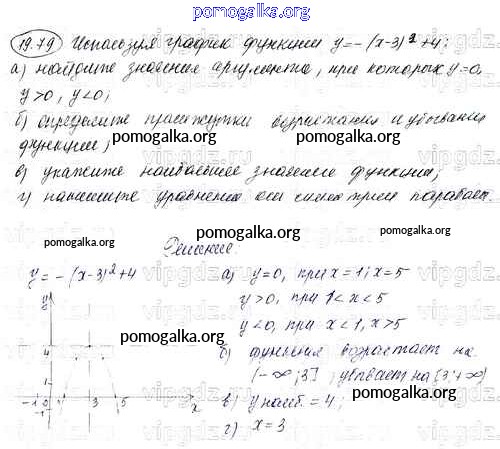 pomogalka.org
19.79 Используя график функции y=-(x-3)²+4:
а) найдите значения аргумента, при которых y=0,
y>0, y<0;
б) определите промежутки возрастания и убывания
pomogalka.org pomogalka.org
функции;
в) укажите наибольшее значение функции;
г) напишите уравнение оси симметрии параболы.
pomogalka.org Решение: pomogalka.org
y=-(x-3)²+4 а) y=0, при x=1; x=5
y y>0, при 1<x<5
pomogalka.org
y<0, при x<1, x>5
4 б) функция возрастает на
(-∞;3]; убывает на [3;+∞)
pomogalka.org pomogalka.org
-1 0 1 3 5 x в) y наиб. = 4;
-1 г) x=3